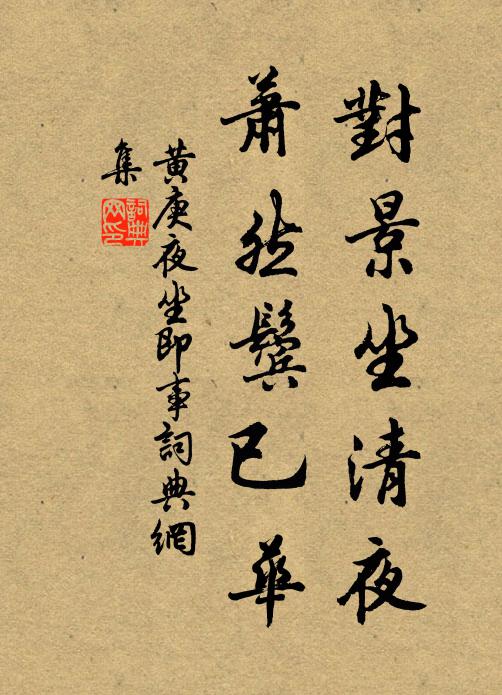 對景坐清夜
蕭然鬢已華
黃庚夜坐即事詞典網
集
詞典網印